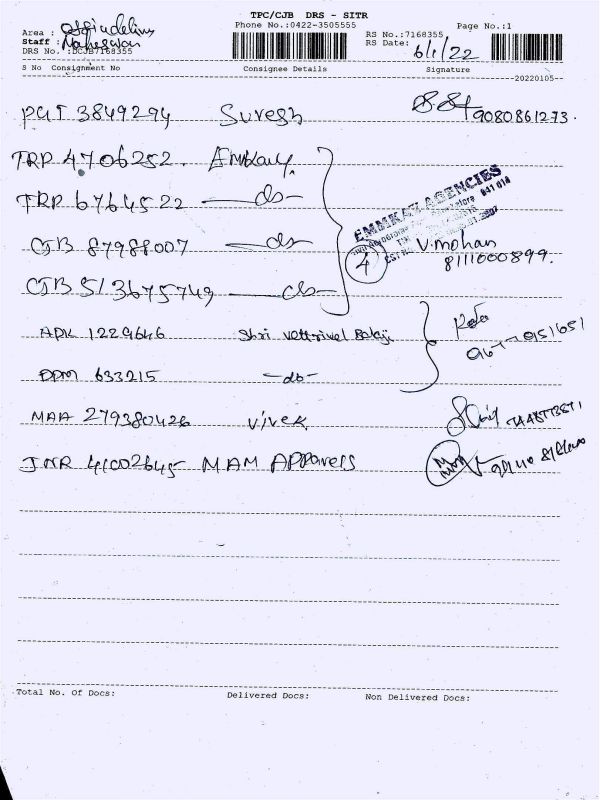 TPC/CJB DRS - SITR
Area :
Phone No.:0422-3505555
Page No.:1
RS No.:7168355
Staff :
DRS No. :DCJB7168355
RS Date: 6/1/22
S No Consignment No Consignee Details Signature
20220105
PGT 3849294 Suresh 9080861273.
TRP 4706252. Emkay.
TRP 6764522 -do-
EMMKAY AGENCIES
CJB 87988007 -do-
4 V.mohan
8111000899.
CJB 513675749 -do-
APK 1229646 Shri Vettrivel Balaji
DPM 633215 -do-
MAA 279380426 Vivek
JNR 41002645 MAM APParels
Total No. Of Docs: Delivered Docs: Non Delivered Docs: